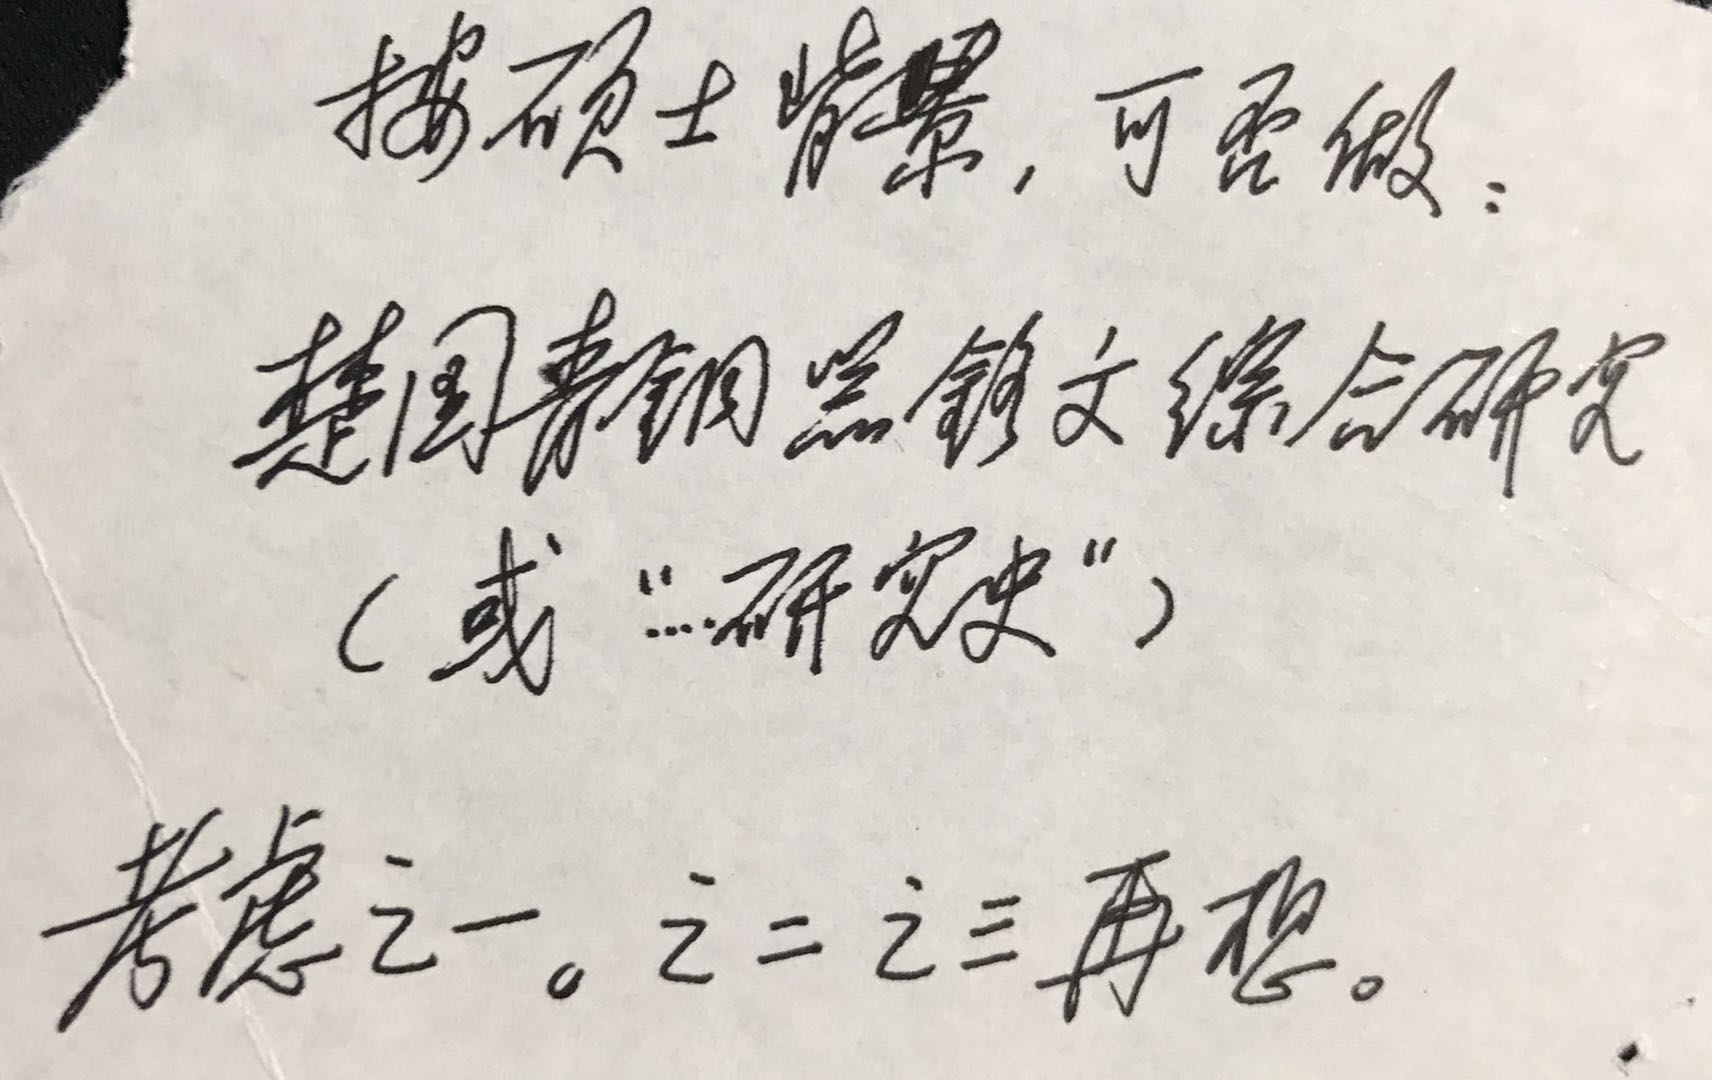 按硕士背景，可否做：
楚国青铜器铭文综合研究
（或“……研究史”）
考虑之一。之二之三再想。